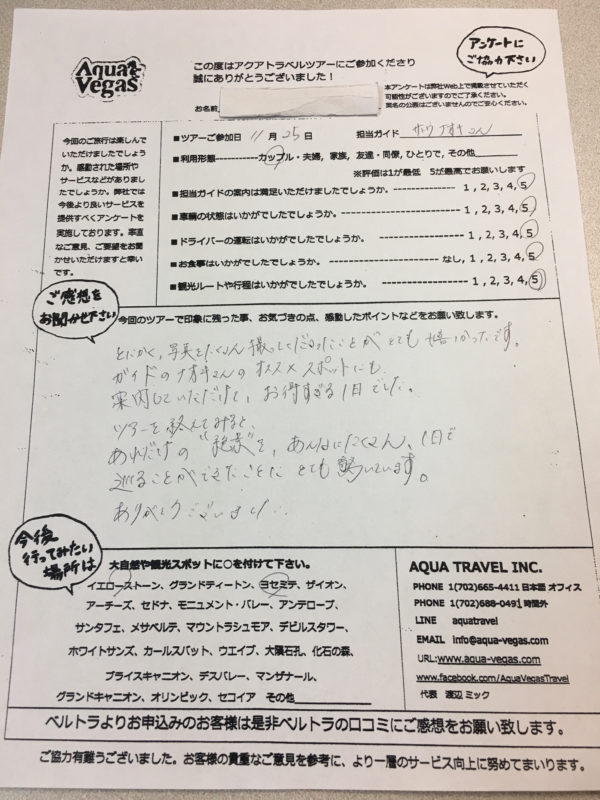 Aqua
Vegas
この度はアクアトラベルツアーにご参加くださり
誠にありがとうございました！
アンケートに
ご協力下さい
お名前
本アンケートは弊社Web上で掲載させていただく
可能性がございますのでご了承ください。
実名の公表はございませんのでご安心ください。
今回のご旅行は楽しんで
いただけましたでしょう
か。感動された場所や
サービスなどがありまし
たでしょうか。弊社では
今後より良いサービスを
提供すべくアンケートを
実施しております。率直
なご意見、ご要望をお聞
かせいただけますと幸い
です。
■ツアーご参加日 11月25日 担当ガイド
■利用形態------------カップル・夫婦, 家族, 友達・同僚, ひとりで, その他
※評価は1が最低 5が最高でお願いします
■担当ガイドの案内は満足いただけましたでしょうか。 --------------- 1, 2, 3, 4, 5
■車輌の状態はいかがでしたでしょうか。 ------------------------ 1, 2, 3, 4, 5
■ドライバーの運転はいかがでしたでしょうか。 ------------------ 1, 2, 3, 4, 5
■お食事はいかがでしたでしょうか。 -------------------- なし, 1, 2, 3, 4, 5
■観光ルートや行程はいかがでしたでしょうか。 ------------------ 1, 2, 3, 4, 5
ご感想を
お聞かせ下さい
今回のツアーで印象に残った事、お気づきの点、感動したポイントなどをお願い致します。
とにかく、写真をたくさん撮ってくださったことがとても嬉しかったです。
ガイドのナオキさんのオススメスポットにも
案内していただけて、お得すぎる1日でした。
ツアーを終えてみると、
あれだけの"絶景"を、あんなにたくさん、1日で
巡ることができたことに とても驚いています。
ありがとうございました
今後
行ってみたい
場所は
大自然や観光スポットに○を付けて下さい。
イエローストーン、グランドティートン、ヨセミテ、ザイオン、
アーチーズ、セドナ、モニュメント・バレー、アンテロープ、
サンタフェ、メサベルデ、マウントラシュモア、デビルスタワー、
ホワイトサンズ、カールスバット、ウエイブ、大隕石孔、化石の森、
ブライスキャニオン、デスバレー、マンザナール、
グランドキャニオン、オリンピック、セコイア その他
AQUA TRAVEL INC.
PHONE 1(702)665-4411 日本語 オフィス
PHONE 1(702)688-0491 時間外
LINE aquatravel
EMAIL info@aqua-vegas.com
URL:www.aqua-vegas.com
www.facebook.com/AquaVegasTravel
代表 渡辺 ミック
ベルトラよりお申込みのお客様は是非ベルトラの口コミにご感想をお願い致します。
ご協力有難うございました。お客様の貴重なご意見を参考に、より一層のサービス向上に努めてまいります。